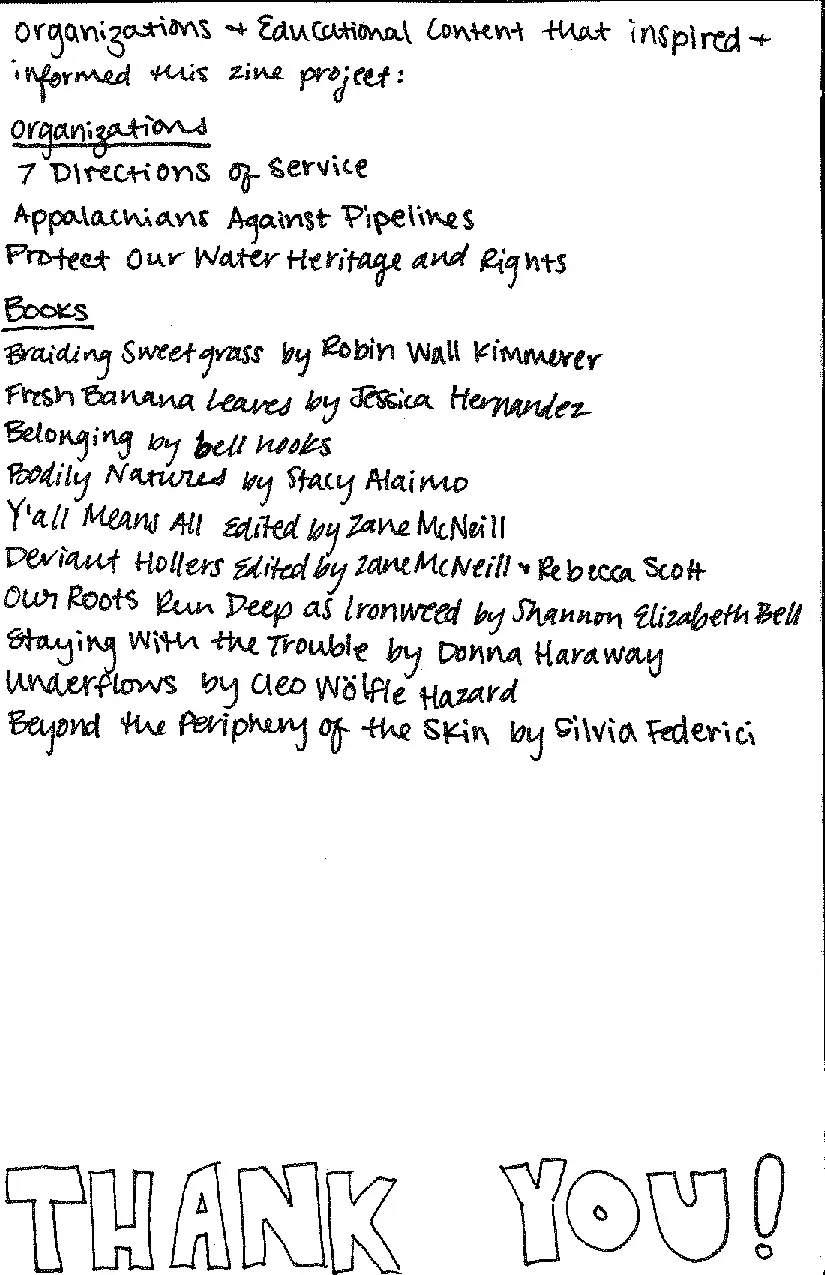 Organizations + Educational Content that inspired +
informed this zine project:
Organizations
7 Directions of Service
Appalachians Against Pipelines
Protect Our Water Heritage and Rights
Books
Braiding Sweetgrass by Robin Wall Kimmerer
Fresh Banana Leaves by Jessica Hernandez
Belonging by bell hooks
Bodily Natures by Stacy Alaimo
Y'all Means All Edited by Zane McNeill
Deviant Hollers Edited by Zane McNeill + Rebecca Scott
Our Roots Run Deep as Ironweed by Shannon Elizabeth Bell
Staying With the Trouble by Donna Haraway
Underflows by Cleo Wölfle Hazard
Beyond the Periphery of the Skin by Silvia Federici
THANK YOU!